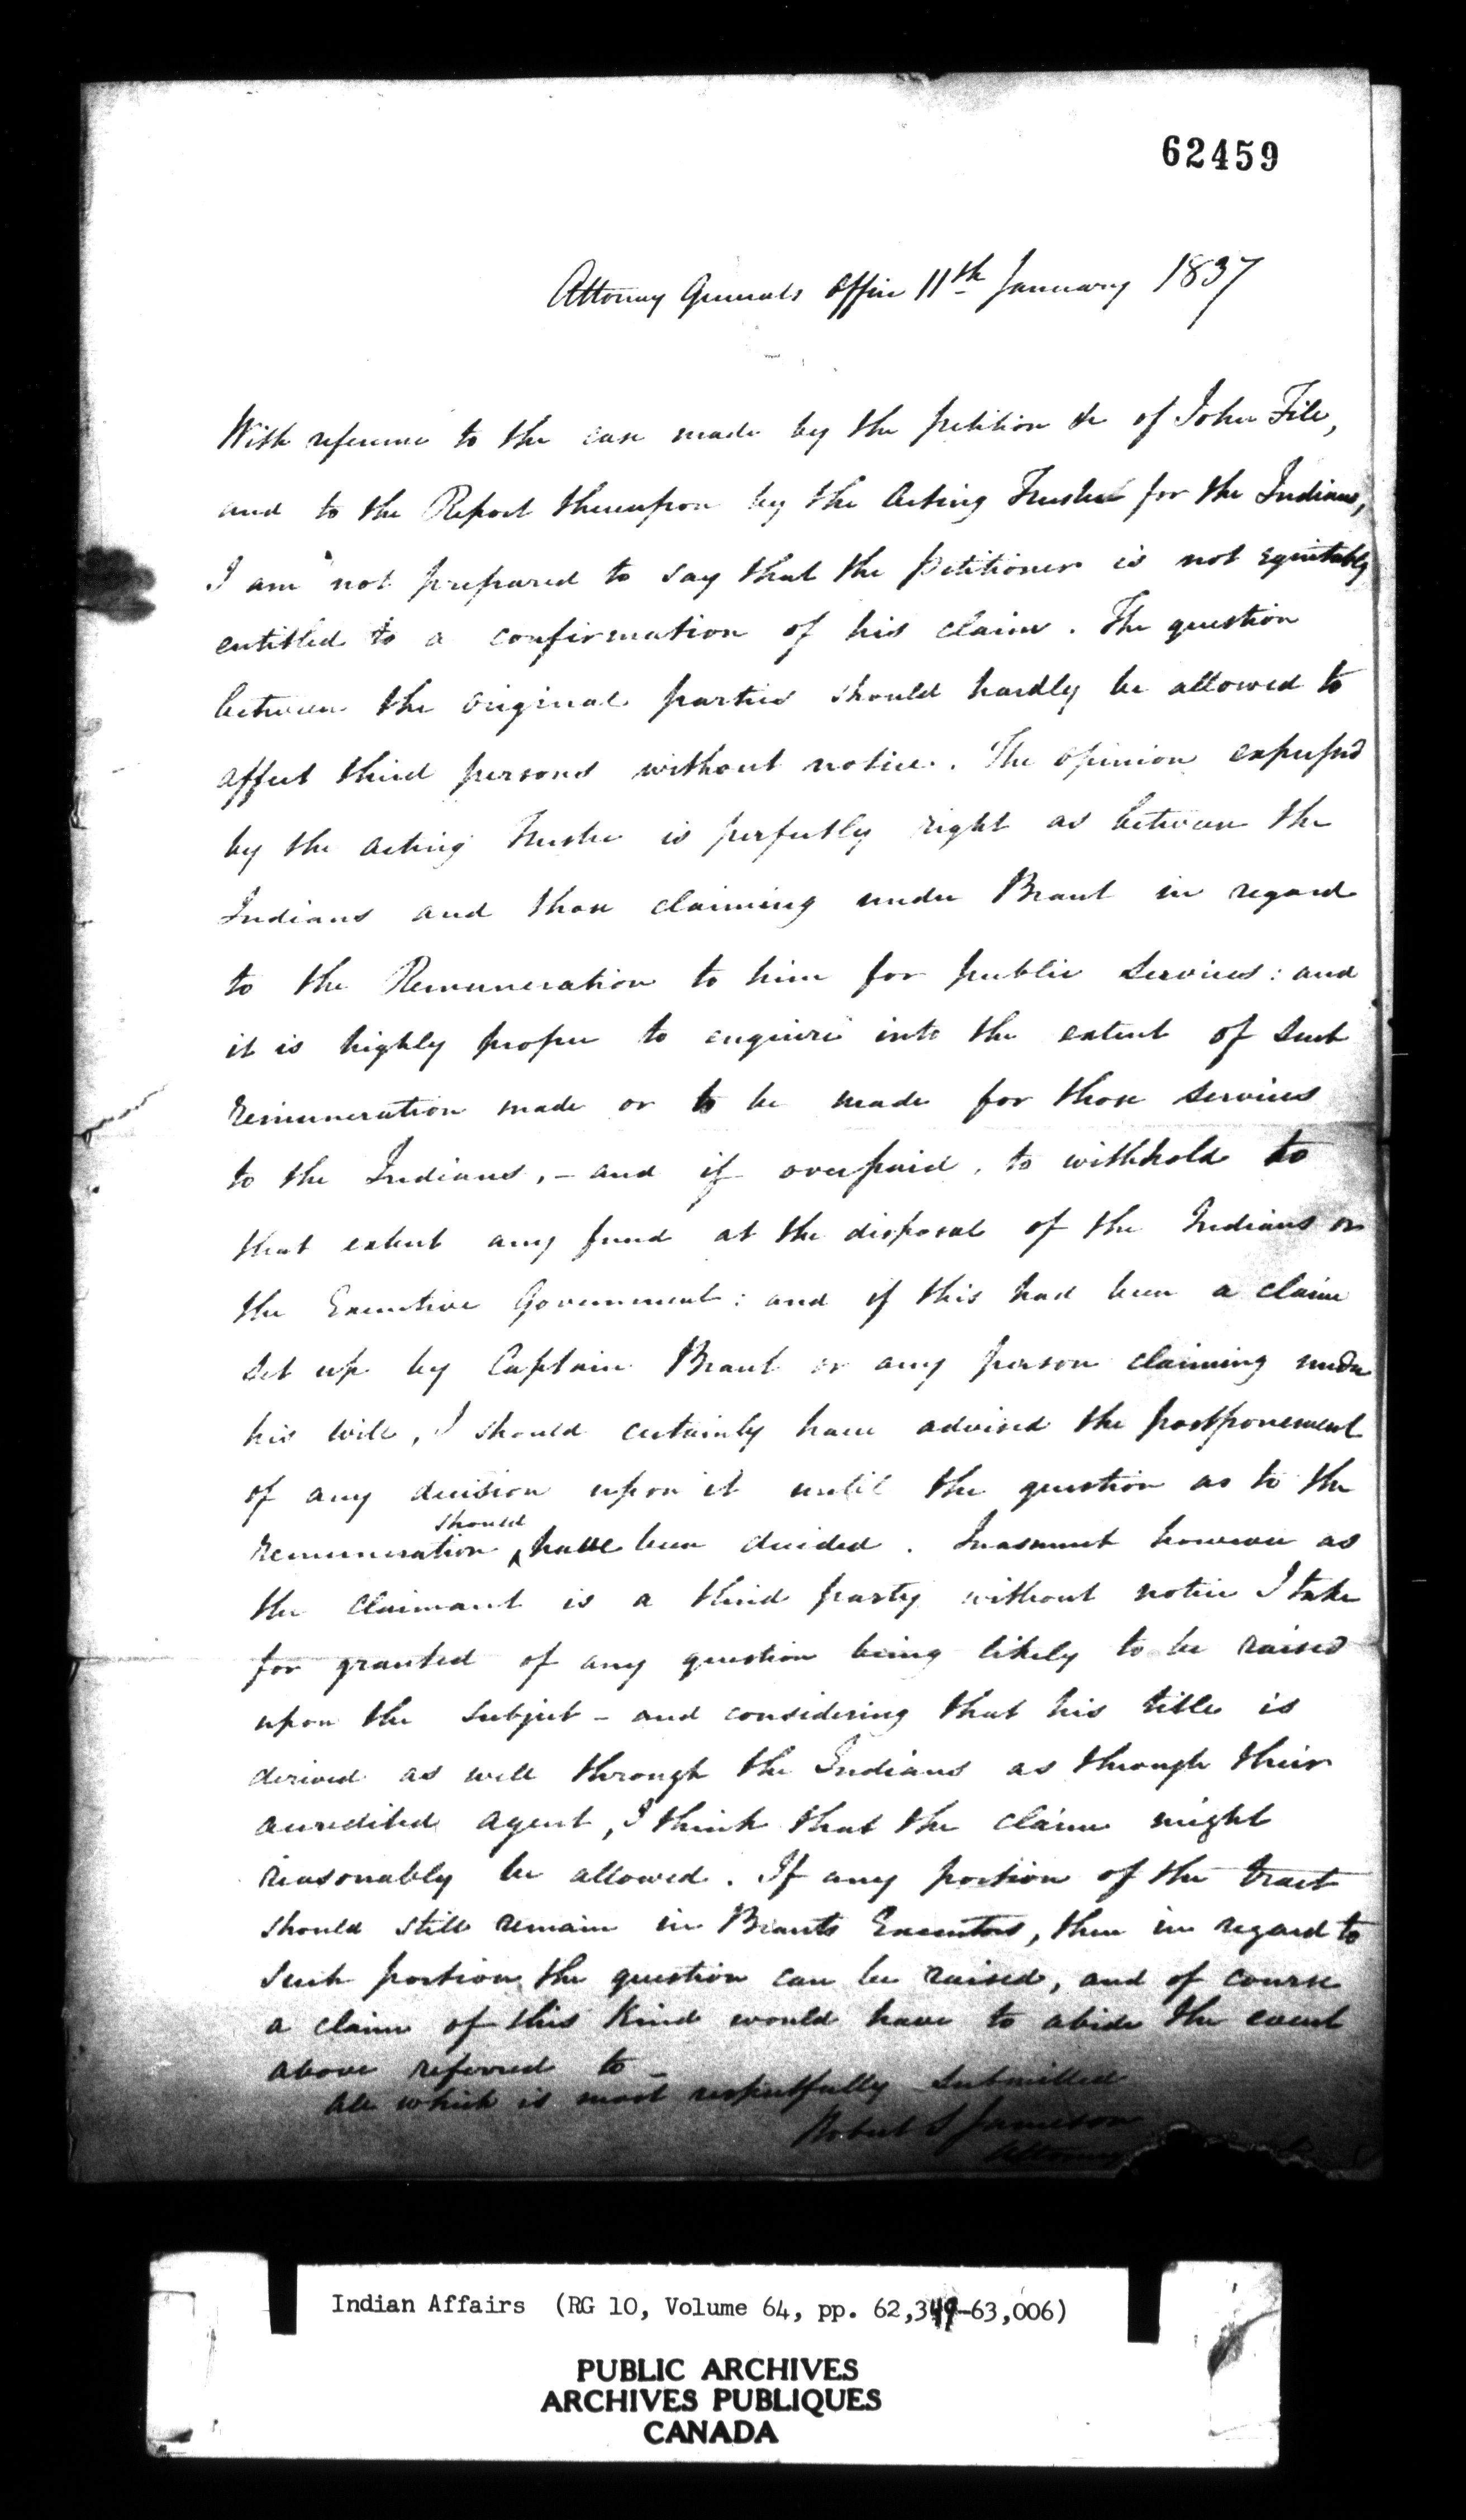 62459
Attorney Generals Office 11th January 1837
With reference to the case made by the petition &c of John File,
and to the Report thereupon by the Acting Trustee for the Indians,
I am not prepared to say that the petitioner is not equitably
entitled to a confirmation of his claim. The question
between the original parties should hardly be allowed to
affect third persons without notice. The opinion expressed
by the acting Trustee is perfectly right as between the
Indians and those claiming under Brant in regard
to the Remuneration to him for public services: and
it is highly proper to enquire into the extent of such
remuneration made or to be made for those services
to the Indians, - and if overpaid, to withhold to
that extent any fund at the disposal of the Indians or
the Executive Government: and if this had been a claim
set up by Captain Brant or any person claiming under
his will, I should certainly have advised the postponement
of any decision upon it until the question as to the
remuneration should have been decided. Inasmuch however as
the claimant is a third party without notice I take
for granted of any question being likely to be raised
upon the subject - and considering that his title is
derived as well through the Indians as through their
accredited agent, I think that the claim might
reasonably be allowed. If any portion of the tract
should still remain in Brants Executors, then in regard to
such portion the question can be raised, and of course
a claim of this kind would have to abide the event
above referred to -
All which is most respectfully submitted
Robert S Jameson
Attorney
Indian Affairs (RG 10, Volume 64, pp. 62,349-63,006)
PUBLIC ARCHIVES
ARCHIVES PUBLIQUES
CANADA